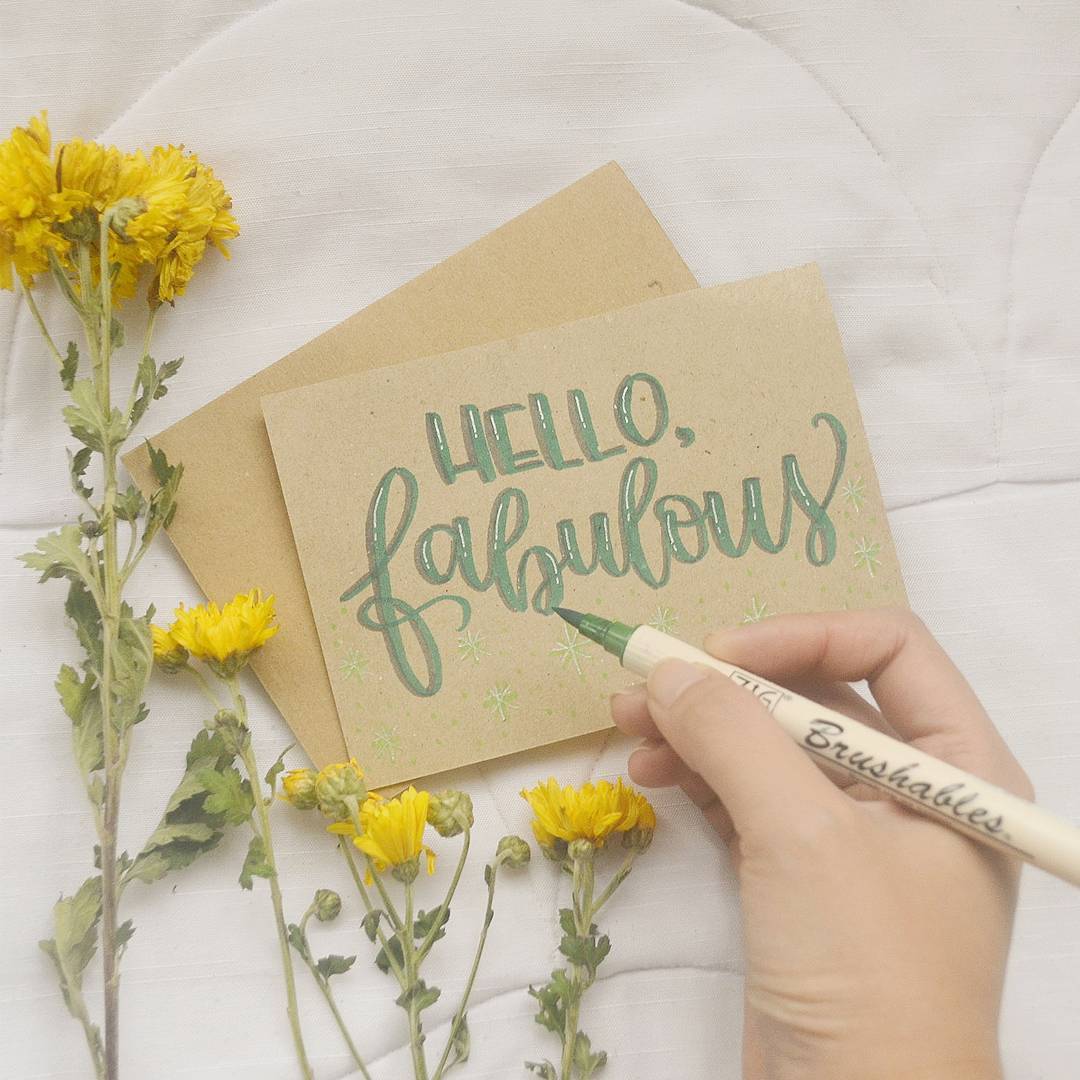 HELLO,
fabulous
ZIG
Brushables.